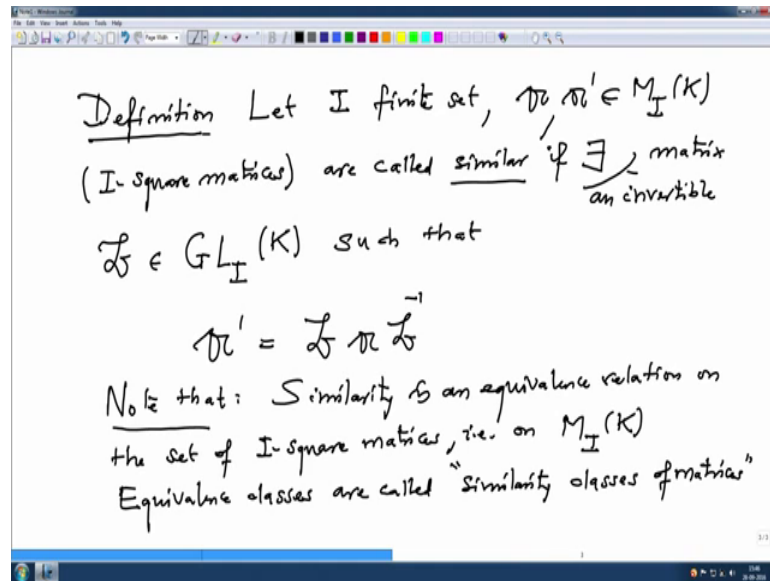 Note1 - Windows Journal
File Edit View Insert Actions Tools Help
Page Width
Definition Let I finite set, 𝔄, 𝔄' ∈ M_I(K)
(I-square matrices) are called similar if ∃ an invertible matrix
𝔙 ∈ GL_I(K) such that
𝔄' = 𝔙 𝔄 𝔙^-1
Note that: Similarity is an equivalence relation on
the set of I-square matrices, i.e. on M_I(K)
Equivalence classes are called "similarity classes of matrices"
1/1
1
15:46